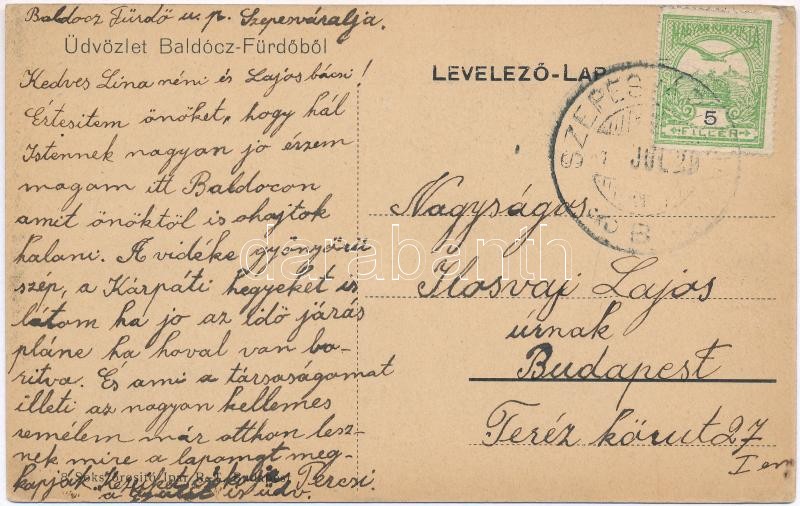 Baldocz Fürdő u. p. Szepesváralja.
Üdvözlet Baldócz-Fürdőből
Kedves Lina néni és Lajos bácsi!
Értesitem önöket, hogy hál
Istennek nagyan jo érzem
magam itt Baldocon
amit önöktöl is ohajtok
halani. A vidéke gyönyörü
szép, a Kárpáti hegyeket is
látom ha jo az idö járás
pláne ha hoval van bo-
ritva. És ami a társaságomat
illeti az nagyon kellemes
remélem már otthon lesz-
nek mire a lapomat meg-
kapják. Kezüket csókolja Tercsi.
a is üdv.
LEVELEZŐ-LAP
MAGYAR KIR. POSTA
5
FILLÉR
SZEPES
JUL 20
B
Nagyságos
Ilosvaj Lajos
úrnak
Budapest
Teréz körut 27
I em
darabanth